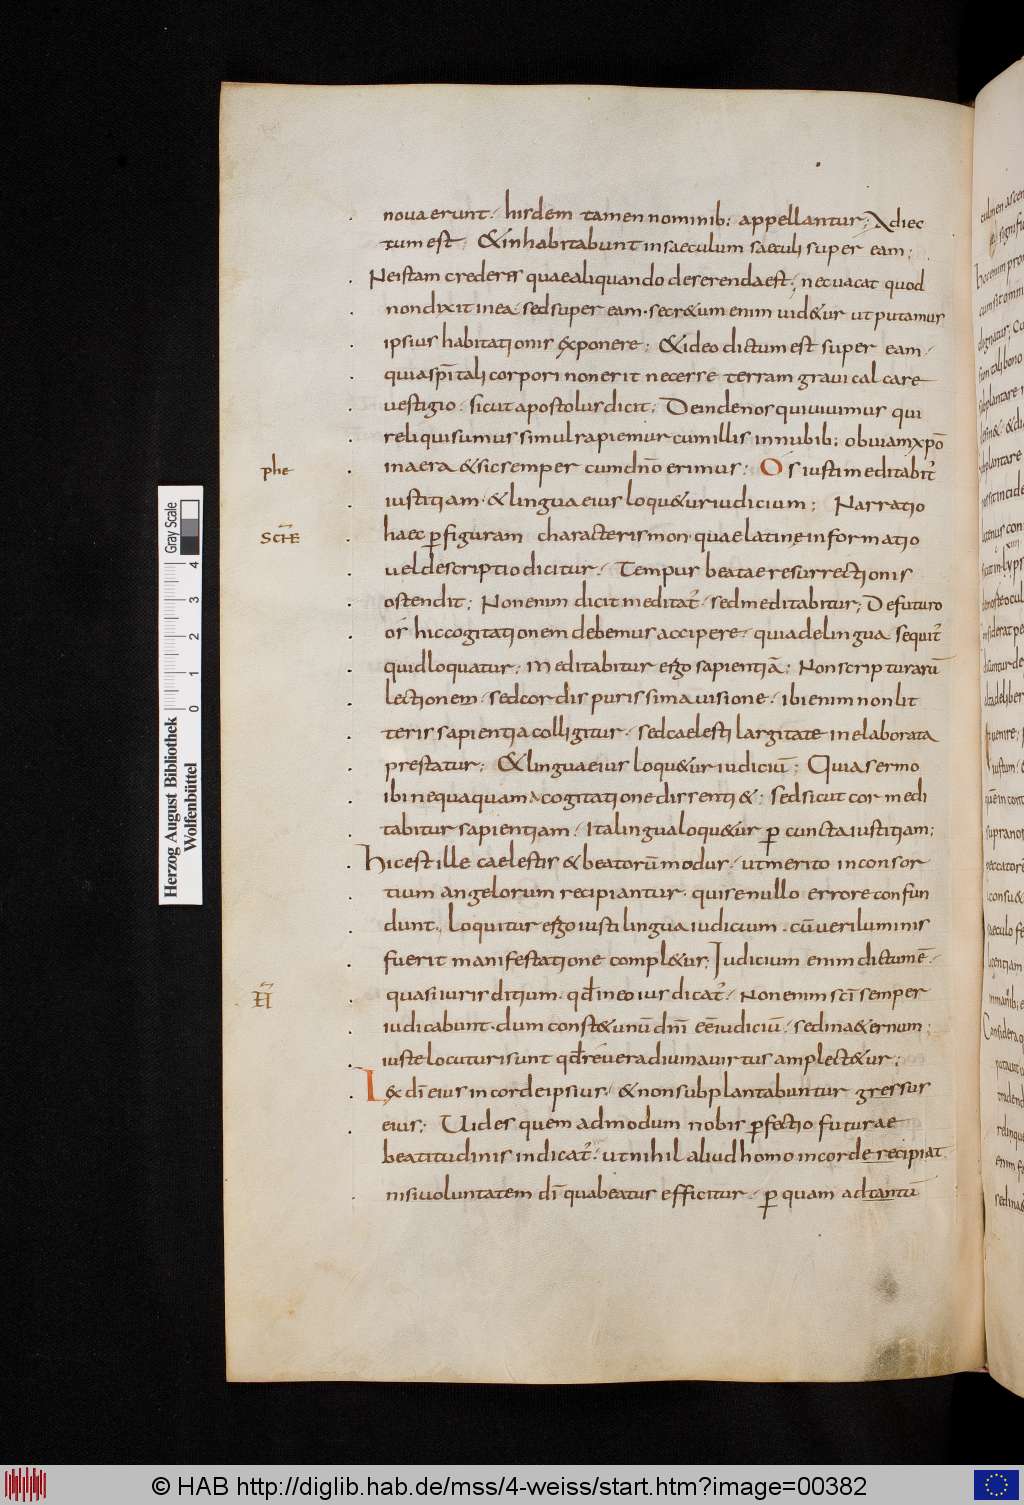 nova erunt. hisdem tamen nominib; appellantur; Adiec
tum est; & inhabitabunt in saeculum saeculi super eam;
Ne istam crederis quae aliquando deserenda est; nec vacat quod
non dixit in ea. sed super eam. secr&um enim vid&ur ut putamur
ipsius habitationis exponere; & ideo dictum est super eam.
quia sp̄itali corpori non erit necesse terram gravi calcare
vestigio. sicut apostolus dicit; Deinde nos qui vivimus qui
reliqui sumus simul rapiemur cum illis in nubib; obviam xp̄o
in aera & sic semper cum dn̄o erimus; Os iusti meditabit̉
phe
iustitiam. & lingua eius loqu&ur iudicium; Narratio
haec ꝑ figuram characterismon. quae latine informatio
SCHE
vel descriptio dicitur. Tempus beatae resurrectionis
ostendit; Non enim dicit meditat̉. sed meditabitur; De futuro
os hic cogitationem debemus accipere. quia de lingua sequit̉
quid loquatur; Meditabitur ergo sapientiā; Non scripturarū
lectionem. sed cordis purissima visione. ibi enim non lit
teris sapientia colligitur. sed caelesti largitate inelaborata
prestatur; & lingua eius loqu&ur iudiciū; Quia sermo
ibi nequaquam a cogitatione dissenti&; sed sicut cor medi
tabitur sapientiam. Ita lingua loqu&ur ꝑ cuncta iustitiam;
Hic est ille caelestis & beatorū modus. ut merito in consor
tium angelorum recipiantur. qui se nullo errore confun
dunt. Loquitur ergo iusti lingua iudicium. cū veri luminis
fuerit manifestatione compl&ur; Iudicium enim dictum ē.
quasi iuris ditium. qđ in eo ius dicat̉. Non enim sc̄i semper
iudicabunt. dum const& unū dn̄i eē iudiciū. sed in a&ernum;
iuste locuturi sunt qđ revera divina virtus amplect&ur;
Lex dī eius in corde ipsius. & non subplantabuntur gressus
eius; Vides quem admodum nobis ꝑfectio futurae
beatitudinis indicat̉. ut nihil aliud homo in corde recipiat
nisi voluntatem dī qua beatus efficitur. ꝑ quam ad tantū
Herzog August Bibliothek
Wolfenbüttel
0 1 2 3 4
Gray Scale
© HAB http://diglib.hab.de/mss/4-weiss/start.htm?image=00382